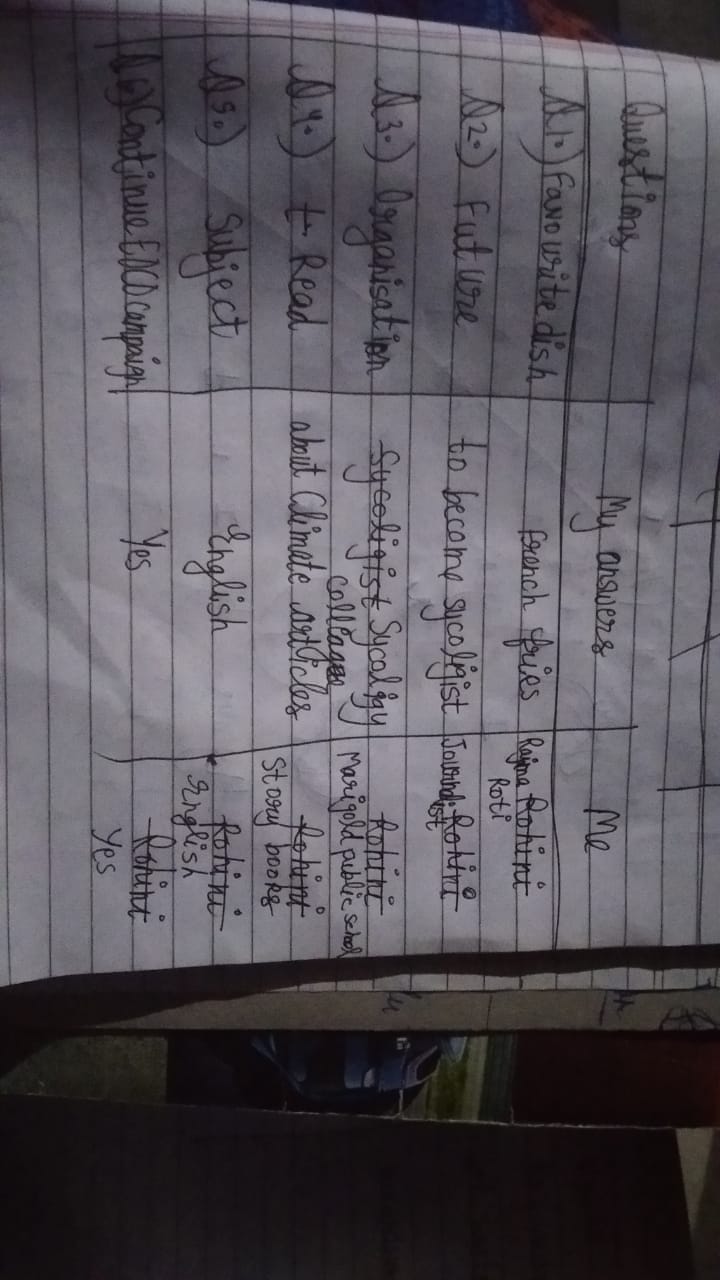 Questions My answers Me
Q.1.) Favourite dish french fries Rajma Rohini
Roti
Q2.) Future to become sycoligist Journalist Rohini
Q3.) Organisation Sycoligist Sycoligy Rohini
college Marigold public school
Q4.) to Read about Climate Articles Rohini
Story books
Q5.) Subject English Rohini
English
Q6) Continue campaign Yes Rohini
Yes